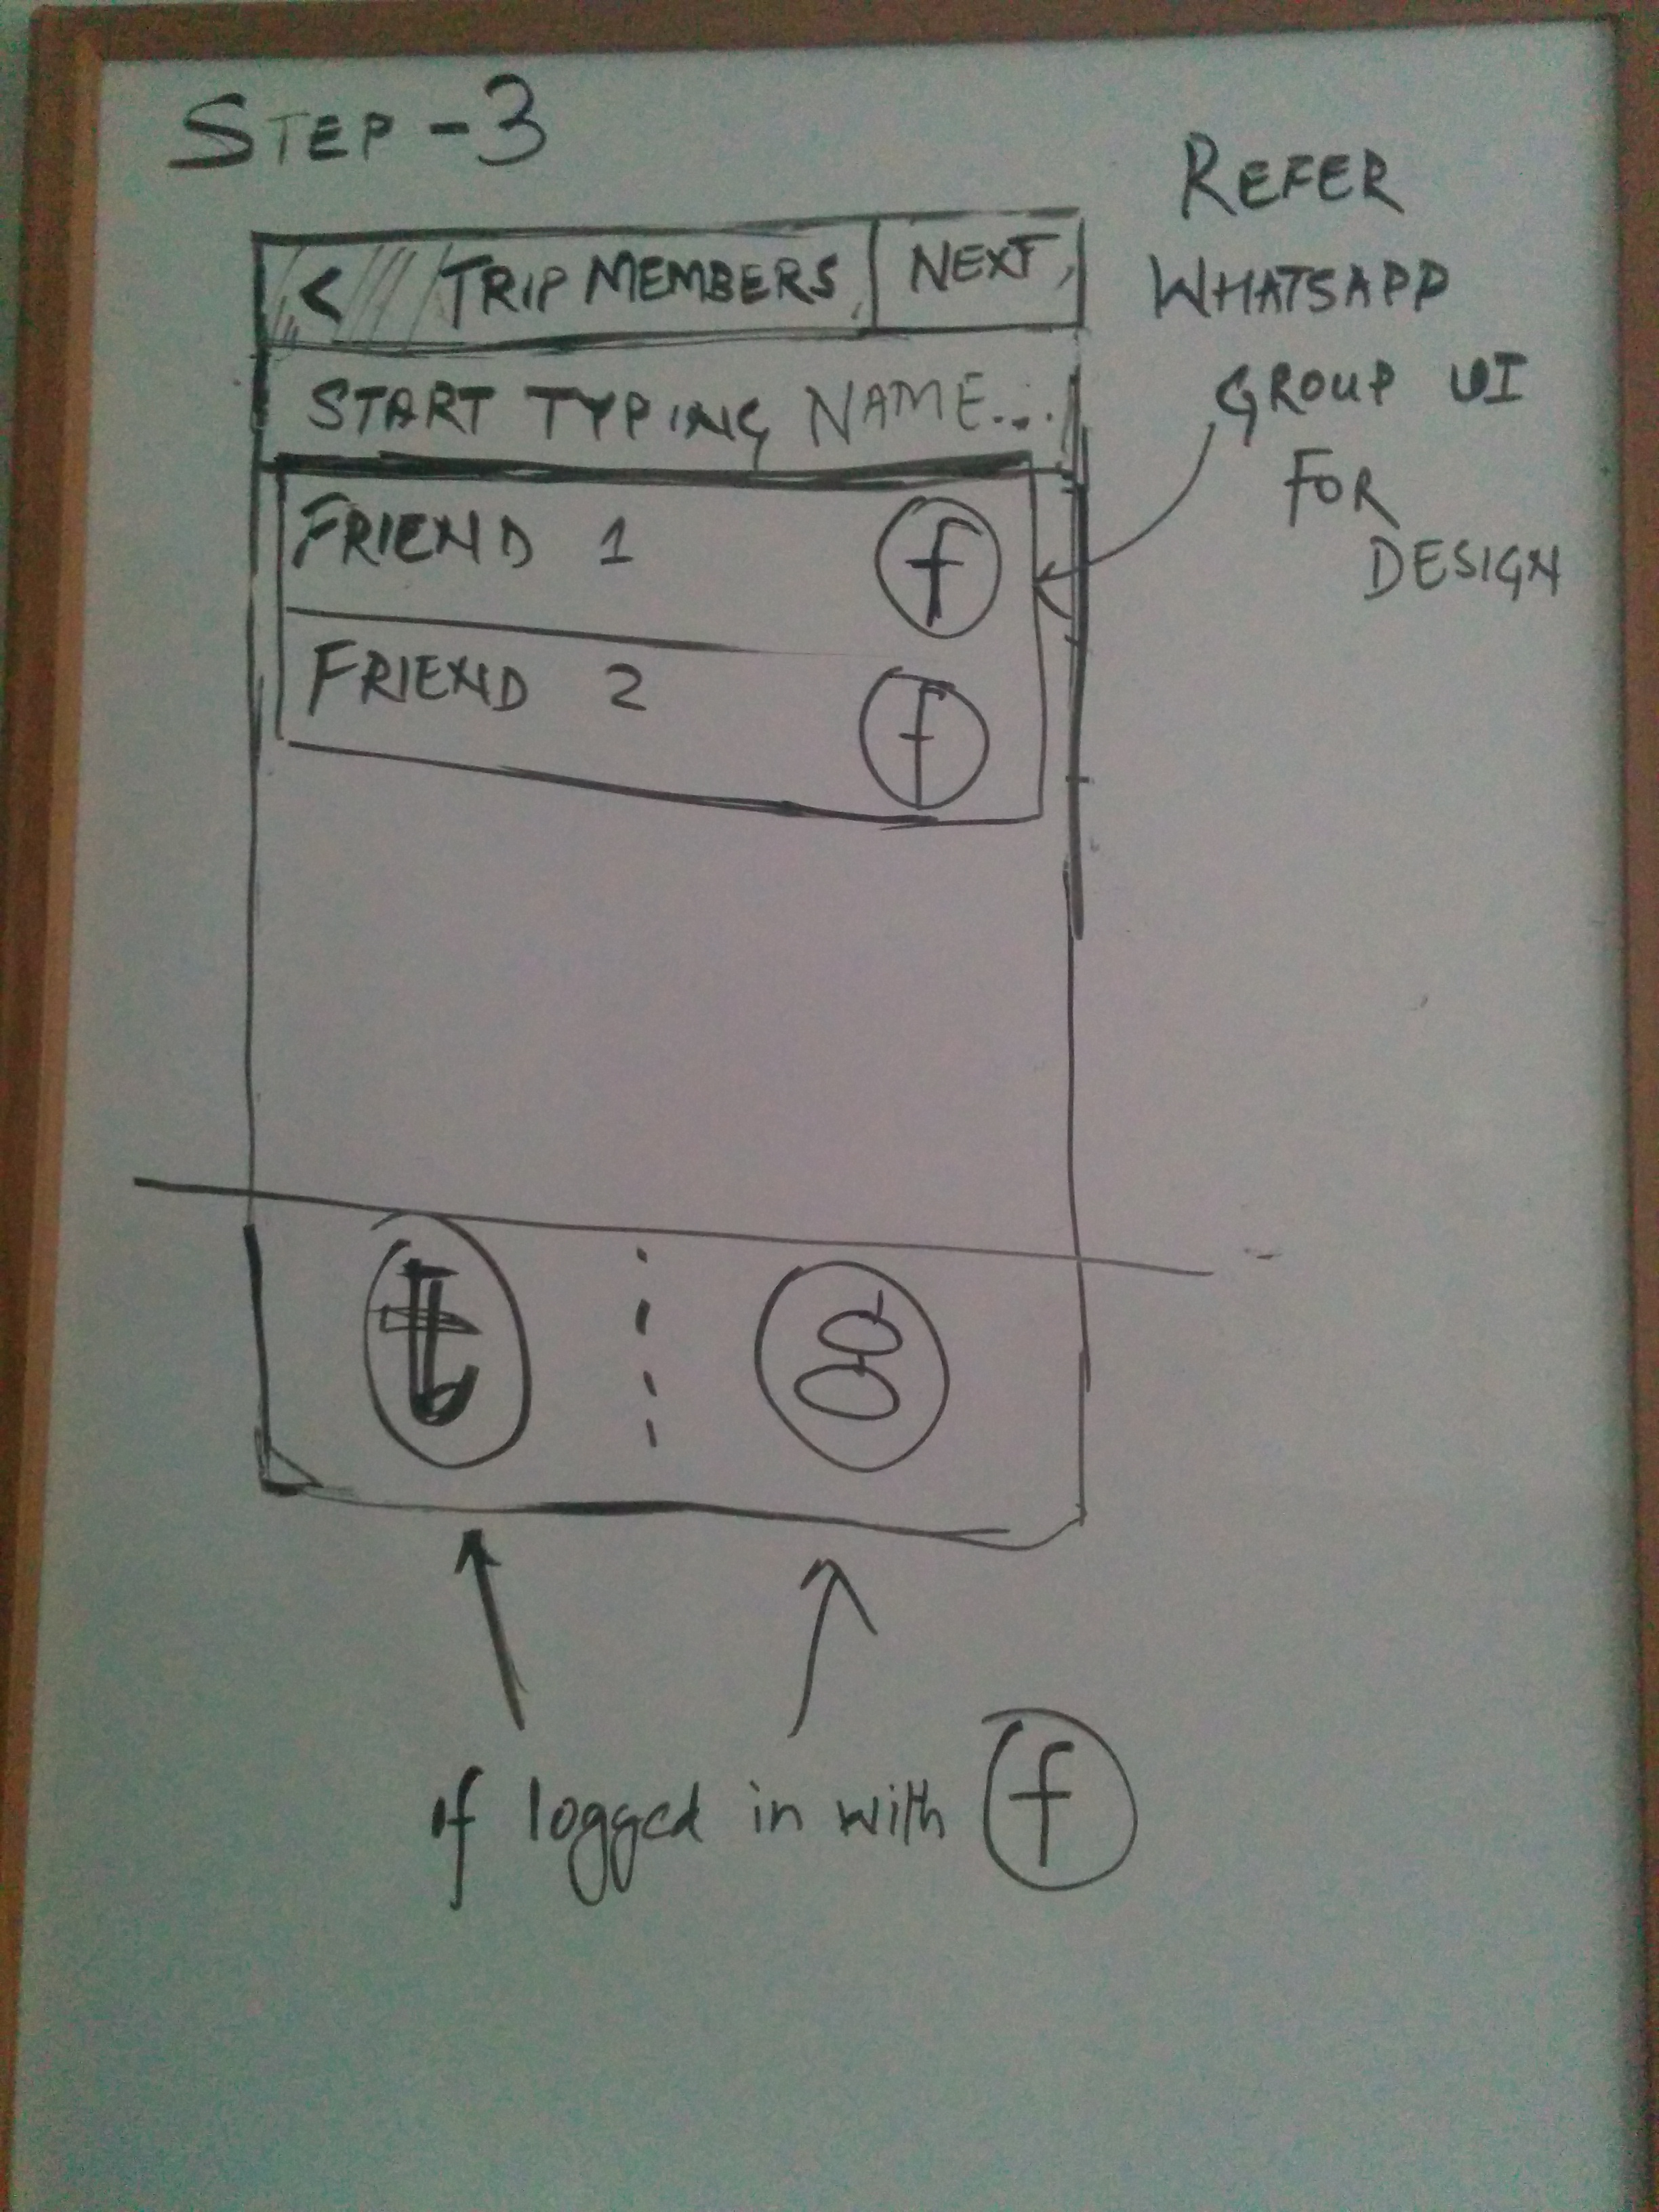 STEP-3
< TRIP MEMBERS NEXT
START TYPING NAME...
FRIEND 1 f
FRIEND 2 f
REFER
WHATSAPP
GROUP UI
FOR
DESIGN
t g
if logged in with f